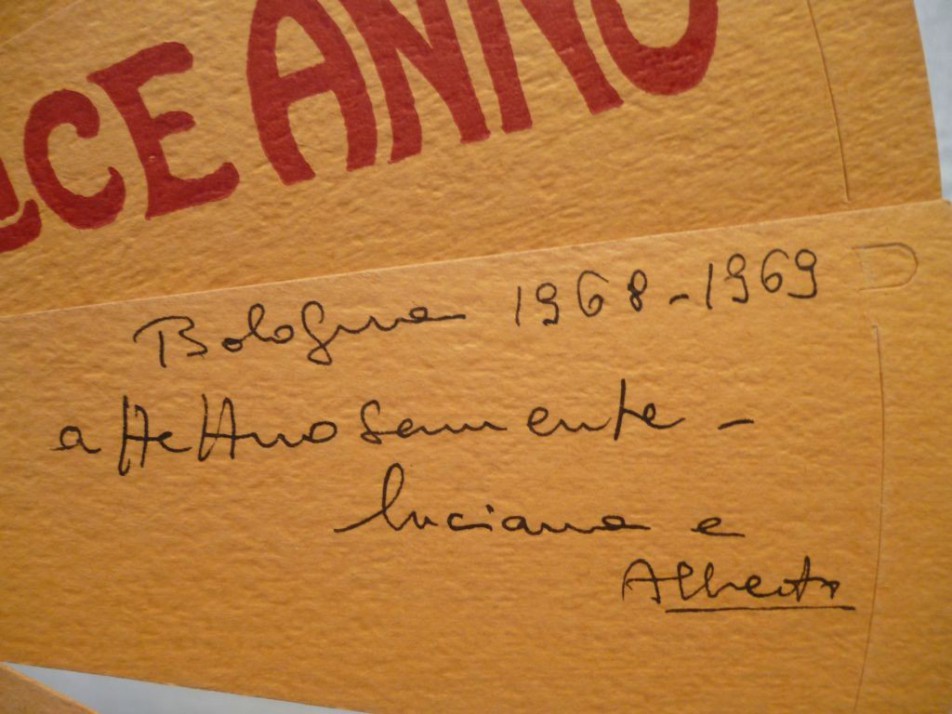 LCE ANNO
Bologna 1968-1969
affettuosamente -
Luciana e
Alberto